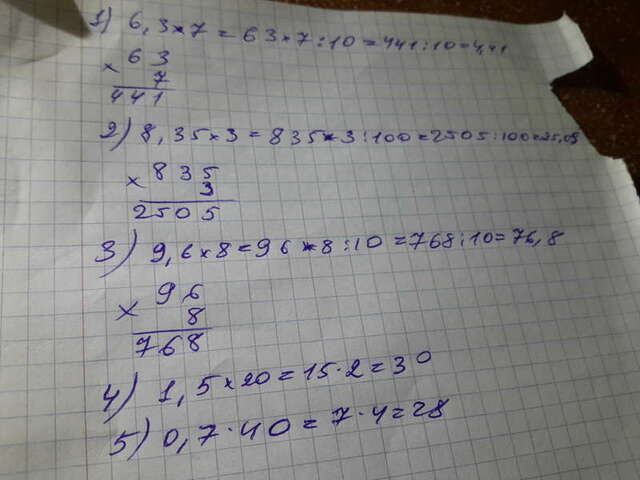 1) 6,3×7=63×7:10=441:10=4,41
× 63
7
441
2) 8,35×3=835×3:100=2505:100=25,05
× 835
3
2505
3) 9,6×8=96×8:10=768:10=76,8
× 96
8
768
4) 1,5×20=15·2=30
5) 0,7·40=7·4=28